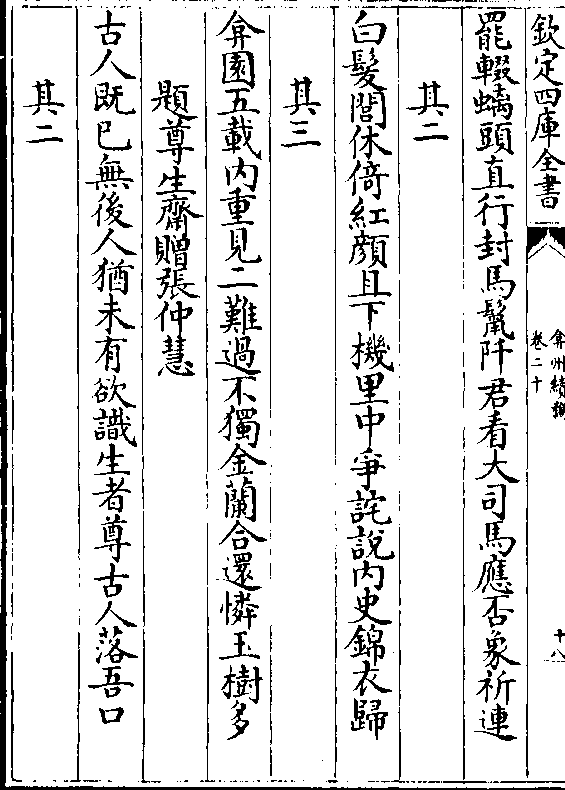 欽定四庫全書
弇州續稿
卷二十
十八
罷輟螭頭直行封馬鬛阡君看大司馬應否象祈連
其二
白髮閭休倚紅顔且下機里中爭詫說内史錦衣歸
其三
弇園五載内重見二難過不獨金蘭合還憐玉樹多
題尊生齋贈張仲慧
古人既已無後人猶未有欲識生者尊古人落吾口
其二